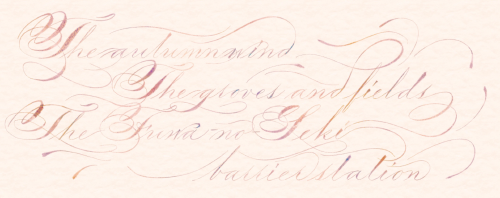 The autumn wind
The groves and fields
The Fuwa no Seki
barrier station